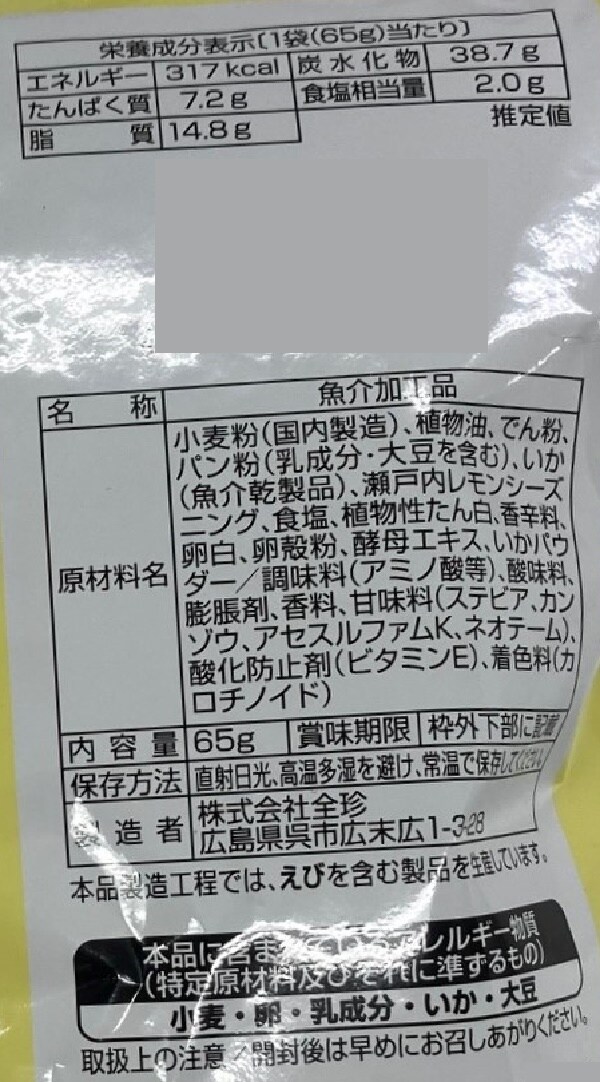 栄養成分表示〔1袋(65g)当たり〕
エネルギー 317kcal 炭水化物 38.7g
たんぱく質 7.2g 食塩相当量 2.0g
脂質 14.8g 推定値
名称 魚介加工品
原材料名
小麦粉(国内製造)、植物油、でん粉、
パン粉(乳成分・大豆を含む)、いか
(魚介乾製品)、瀬戸内レモンシーズ
ニング、食塩、植物性たん白、香辛料、
卵白、卵殻粉、酵母エキス、いかパウ
ダー/調味料(アミノ酸等)、酸味料、
膨脹剤、香料、甘味料(ステビア、カン
ゾウ、アセスルファムK、ネオテーム)、
酸化防止剤(ビタミンE)、着色料(カ
ロチノイド)
内容量 65g 賞味期限 枠外下部に記載
保存方法 直射日光、高温多湿を避け、常温で保存してください
製造者 株式会社全珍
広島県呉市広末広1-3-28
本品製造工程では、えびを含む製品を生産しています。
本品に含まれているアレルギー物質
(特定原材料及びそれに準ずるもの)
小麦・卵・乳成分・いか・大豆
取扱上の注意/開封後は早めにお召しあがりください。